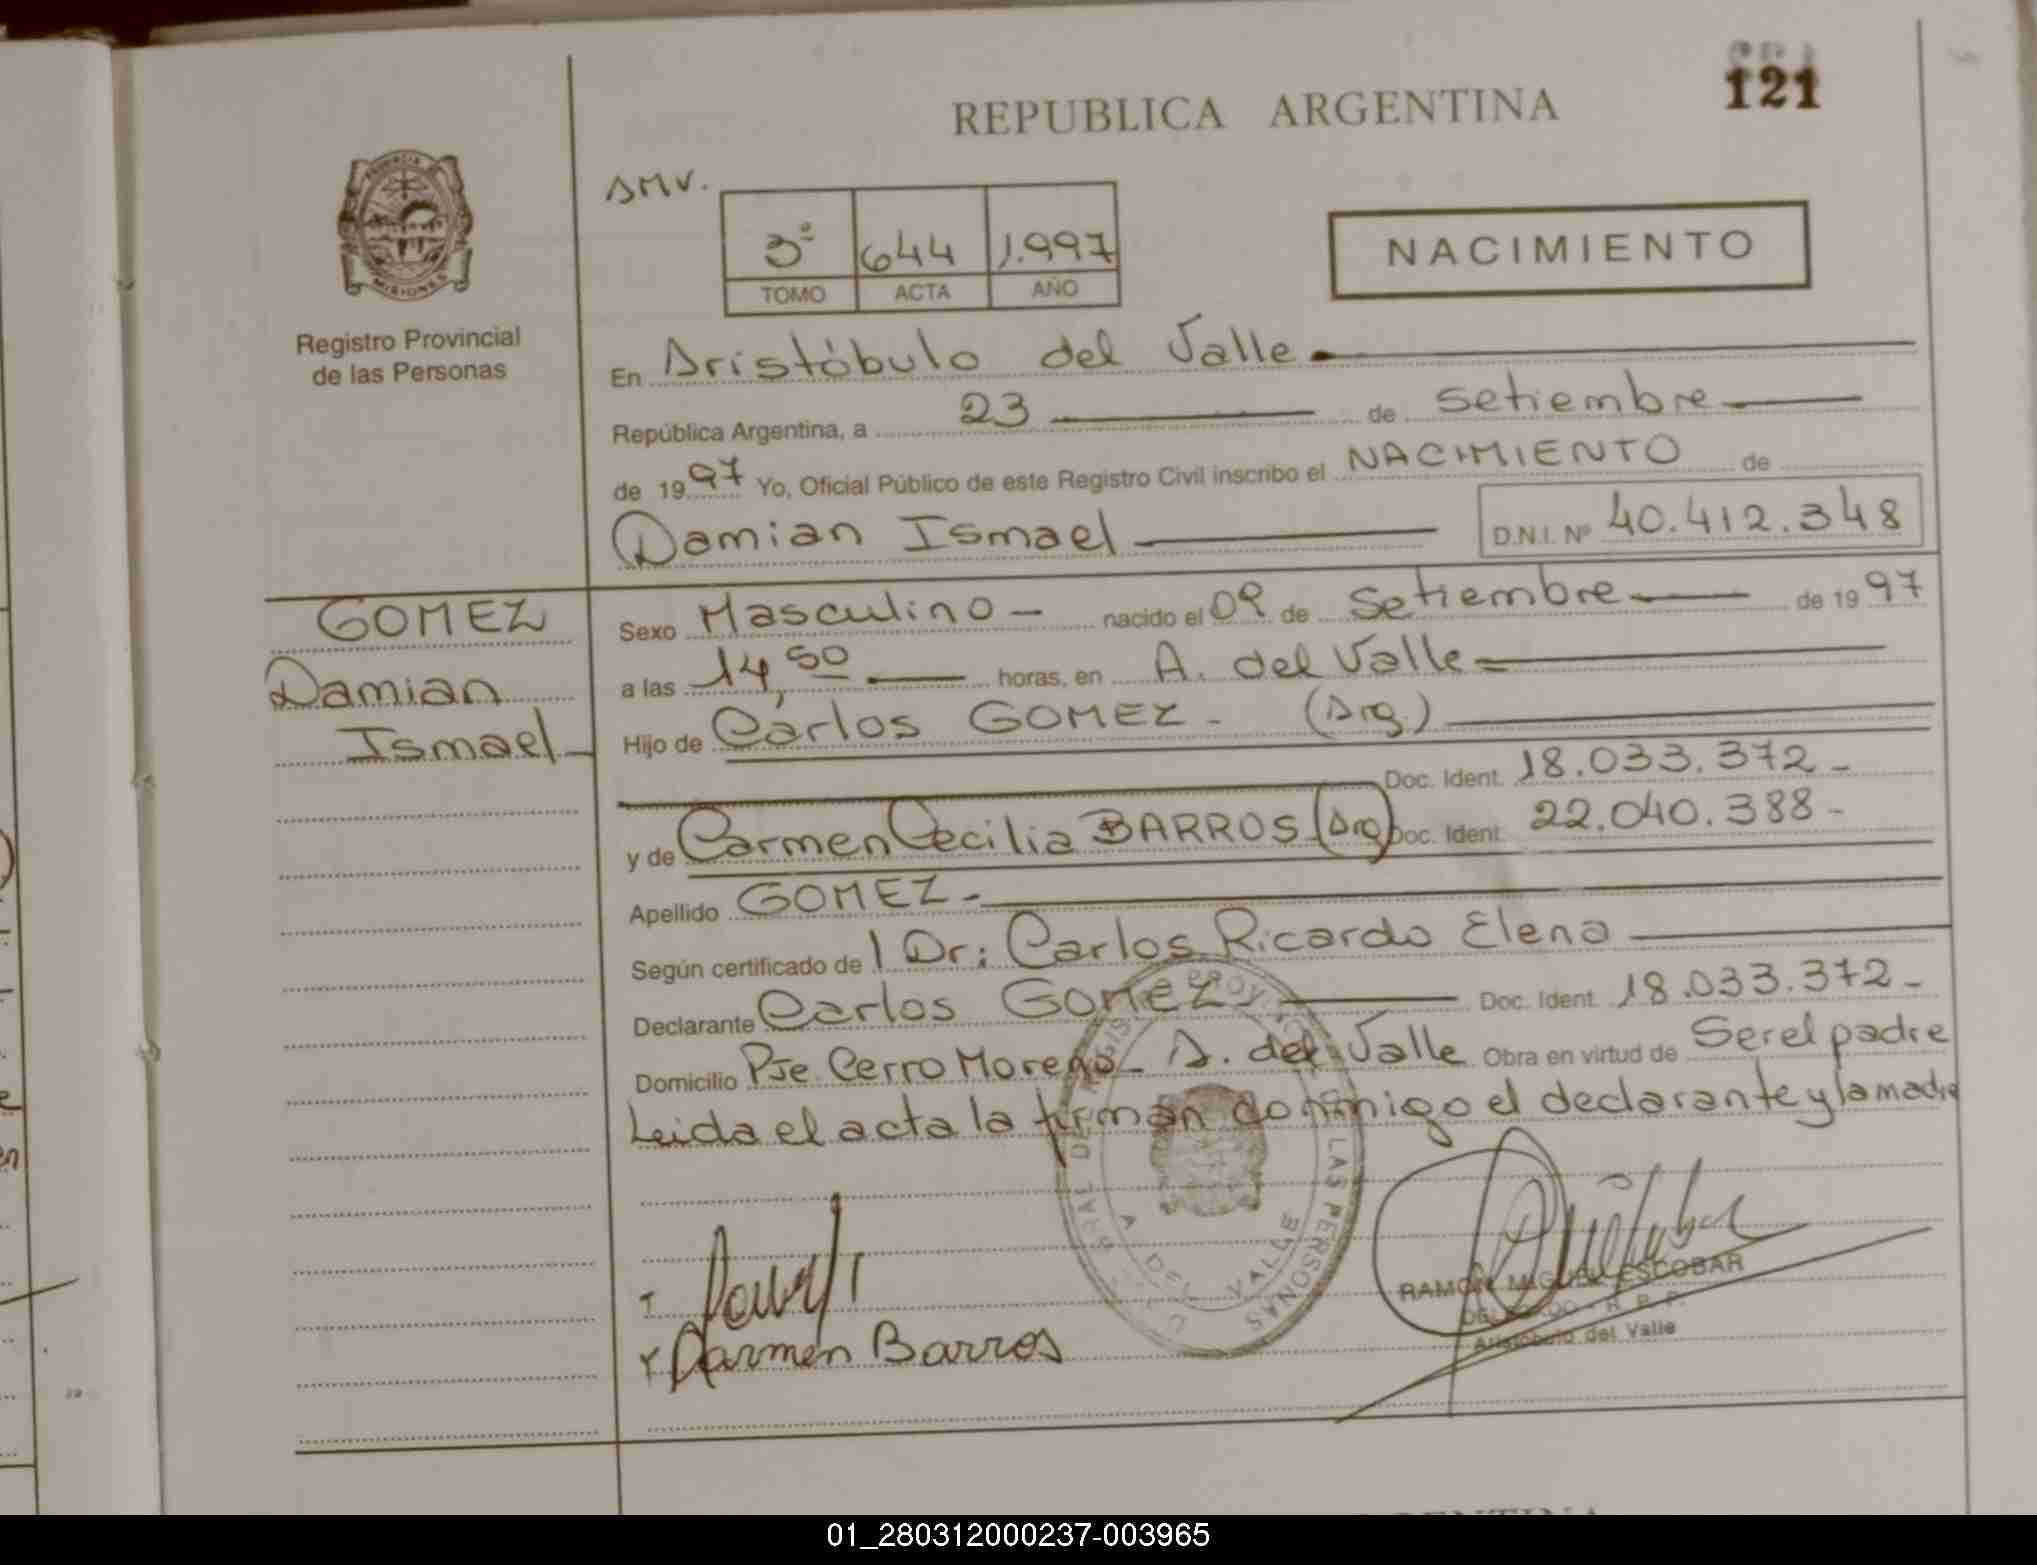 121
REPUBLICA ARGENTINA
AMV.
3º 644 1.997
TOMO ACTA AÑO
NACIMIENTO
PROVINCIA
MISIONES
Registro Provincial
de las Personas
En Aristóbulo del Valle
República Argentina, a 23 de Setiembre
de 1997 Yo, Oficial Público de este Registro Civil inscribo el NACIMIENTO de
Damian Ismael D.N.I. Nº 40.412.348
GOMEZ
Damian
Ismael
Sexo Masculino nacido el 09 de Setiembre de 1997
a las 14,50 horas, en A. del Valle
Hijo de Carlos GOMEZ - (Arg.)
Doc. Ident. 18.033.372-
y de Carmen Cecilia BARROS (Arg) Doc. Ident. 22.040.388-
Apellido GOMEZ-
Según certificado de l Dr: Carlos Ricardo Elena
Declarante Carlos GOMEZ Doc. Ident. 18.033.372-
Domicilio Pje Cerro Moreno- A. del Valle Obra en virtud de Ser el padre
Leida el acta la firman conmigo el declarante y la madre
LAS PERSONAS
A. DEL VALLE
RAMON MIGUEL ESCOBAR
DELEGADO - R. P. P.
Aristóbulo del Valle
Carmen Barros
01_280312000237-003965